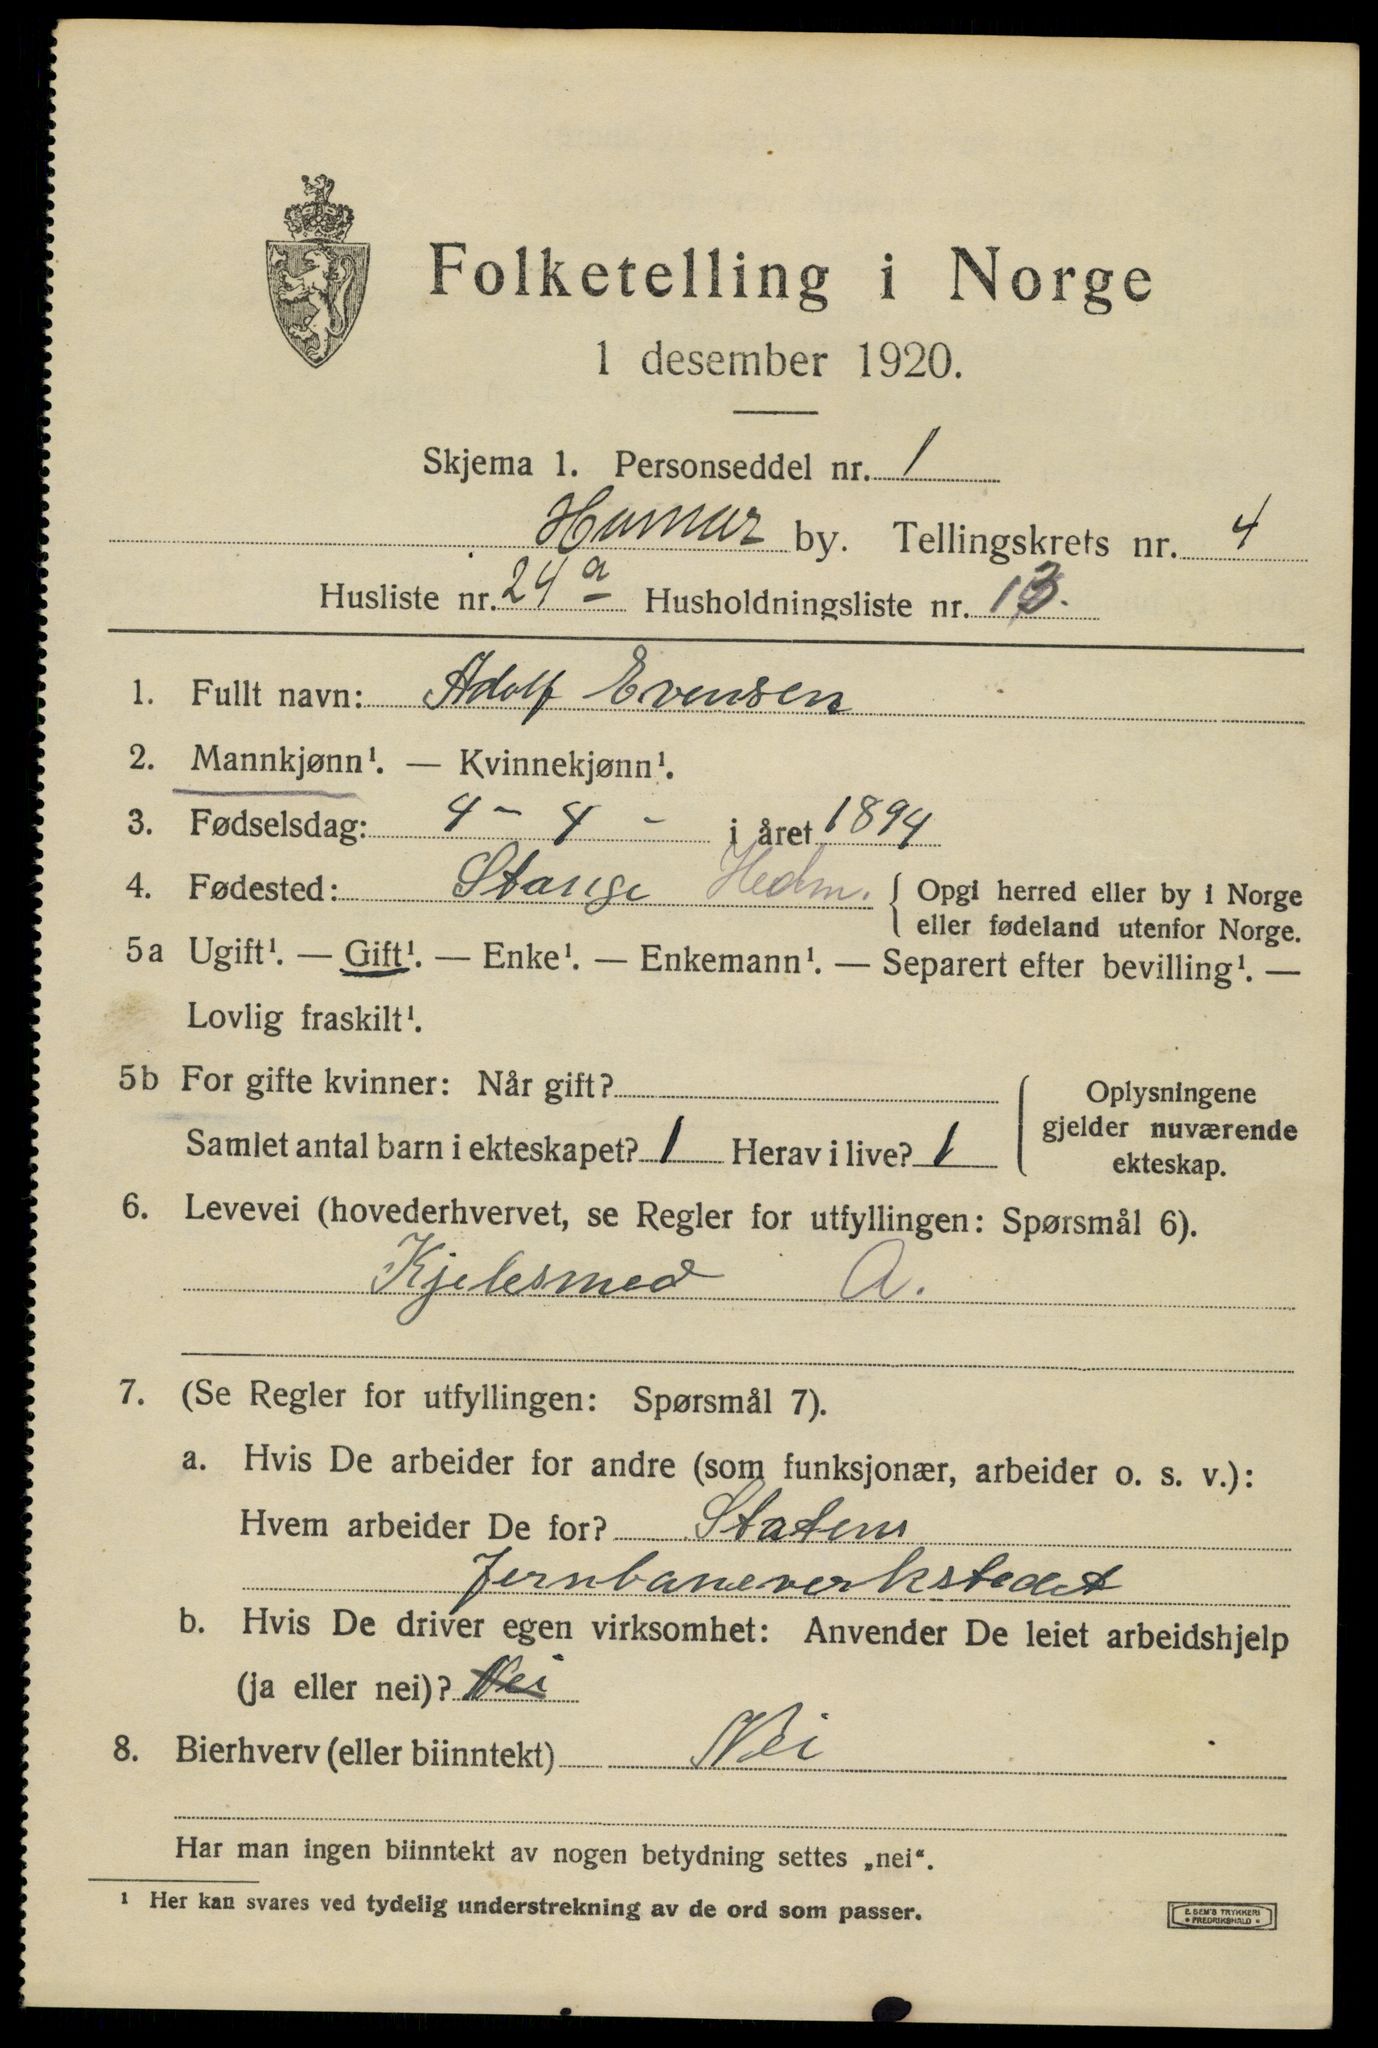 Folketelling i Norge
1 desember 1920.
Skjema 1. Personseddel nr. 1
Hamar by. Tellingskrets nr. 4
Husliste nr. 24 a Husholdningsliste nr. 13.
1. Fullt navn: Adolf Evensen
2. Mannkjønn¹. — Kvinnekjønn¹.
3. Fødselsdag: 4 - 4 - i året 1894
4. Fødested: Stange Hedm. { Opgi herred eller by i Norge
eller fødeland utenfor Norge.
5a Ugift¹. — Gift¹. — Enke¹. — Enkemann¹. — Separert efter bevilling¹. —
Lovlig fraskilt¹.
5b For gifte kvinner: Når gift? Oplysningene
gjelder nuværende
Samlet antal barn i ekteskapet? 1 Herav i live? 1 ekteskap.
6. Levevei (hovederhvervet, se Regler for utfyllingen: Spørsmål 6).
Kjelesmed A.
7. (Se Regler for utfyllingen: Spørsmål 7).
a. Hvis De arbeider for andre (som funksjonær, arbeider o. s. v.):
Hvem arbeider De for? Statens
Jernbaneverkstedet
b. Hvis De driver egen virksomhet: Anvender De leiet arbeidshjelp
(ja eller nei)? Nei
8. Bierhverv (eller biinntekt) Nei
Har man ingen biinntekt av nogen betydning settes „nei“.
¹ Her kan svares ved tydelig understrekning av de ord som passer.
E. SEM'S TRYKKERI
• FREDRIKSHALD •